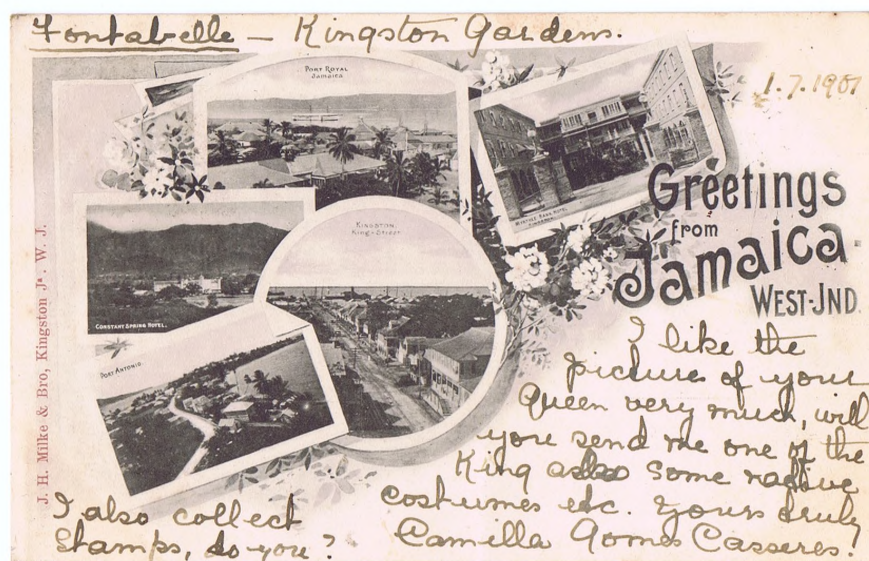 Fontabelle – Kingston Gardens.
1.7.1901
PORT ROYAL
Jamaica
MYRTLE BANK HOTEL
KINGSTON.
Greetings
from
Jamaica.
WEST-IND.
KINGSTON,
King-Street
CONSTANT SPRING HOTEL.
PORT ANTONIO
J. H. Milke & Bro, Kingston Ja. W. J.
I like the
picture of your
Queen very much, will
you send me one of the
King also some native
costumes etc. Yours truly
Camilla Gomes Casseres.
I also collect
stamps, do you?